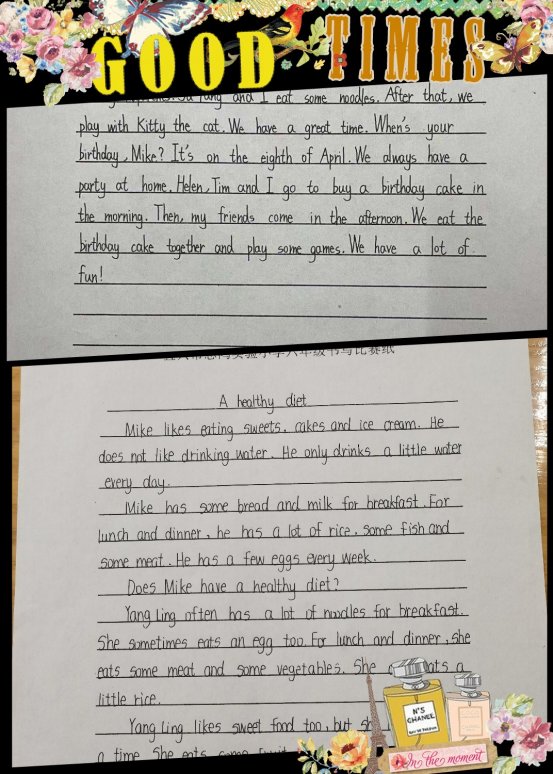 GOOD TIMES
and I eat some noodles. After that, we
play with Kitty the cat. We have a great time. When's your
birthday, Mike? It's on the eighth of April. We always have a
party at home. Helen, Tim and I go to buy a birthday cake in
the morning. Then, my friends come in the afternoon. We eat the
birthday cake together and play some games. We have a lot of
fun!
A healthy diet
Mike likes eating sweets, cakes and ice cream. He
does not like drinking water. He only drinks a little water
every day.
Mike has some bread and milk for breakfast. For
lunch and dinner, he has a lot of rice, some fish and
some meat. He has a few eggs every week.
Does Mike have a healthy diet?
Yang Ling often has a lot of noodles for breakfast.
She sometimes eats an egg too. For lunch and dinner, she
eats some meat and some vegetables. She a
little rice.
Yang Ling likes sweet food too, but
a time. She eats some
N°5
CHANEL
In the moment